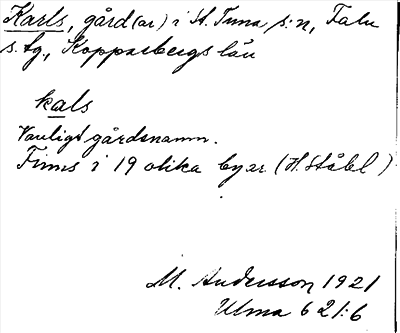 Karls, gård(ar) i St. Tuna s:n, Falu
s. tg, Kopparbergs län
kals
Vanligt gårdsnamn.
Finns i 19 olika byar. (H. Ståhl)
M. Andersson 1921
Ulma 621:6